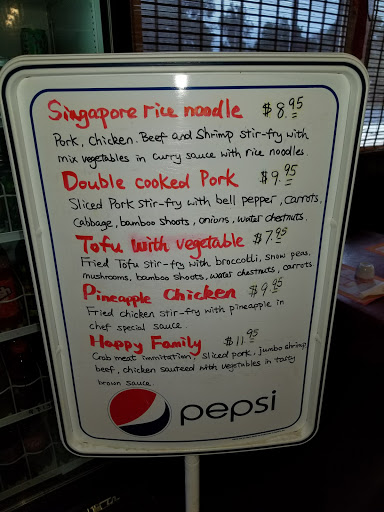 Singapore rice noodle $8.95
Pork, chicken. Beef and Shrimp stir-fry with
mix vegetables in curry sauce with rice noodles
Double cooked Pork $9.95
Sliced Pork stir-fry with bell pepper, carrots,
cabbage, bamboo shoots, onions, water chestnuts.
Tofu with vegetable $7.95
Fried Tofu stir-fry with broccotli, snow peas,
mushrooms, bamboo shoots, water chestnuts, carrots
Pineapple chicken $9.95
Fried chicken stir-fry with pineapple in
chef special sauce.
Happy Family $11.95
Crab meat immitation, sliced pork, jumbo shrimp,
beef, chicken sauteed with vegetables in tasty
brown sauce.
pepsi